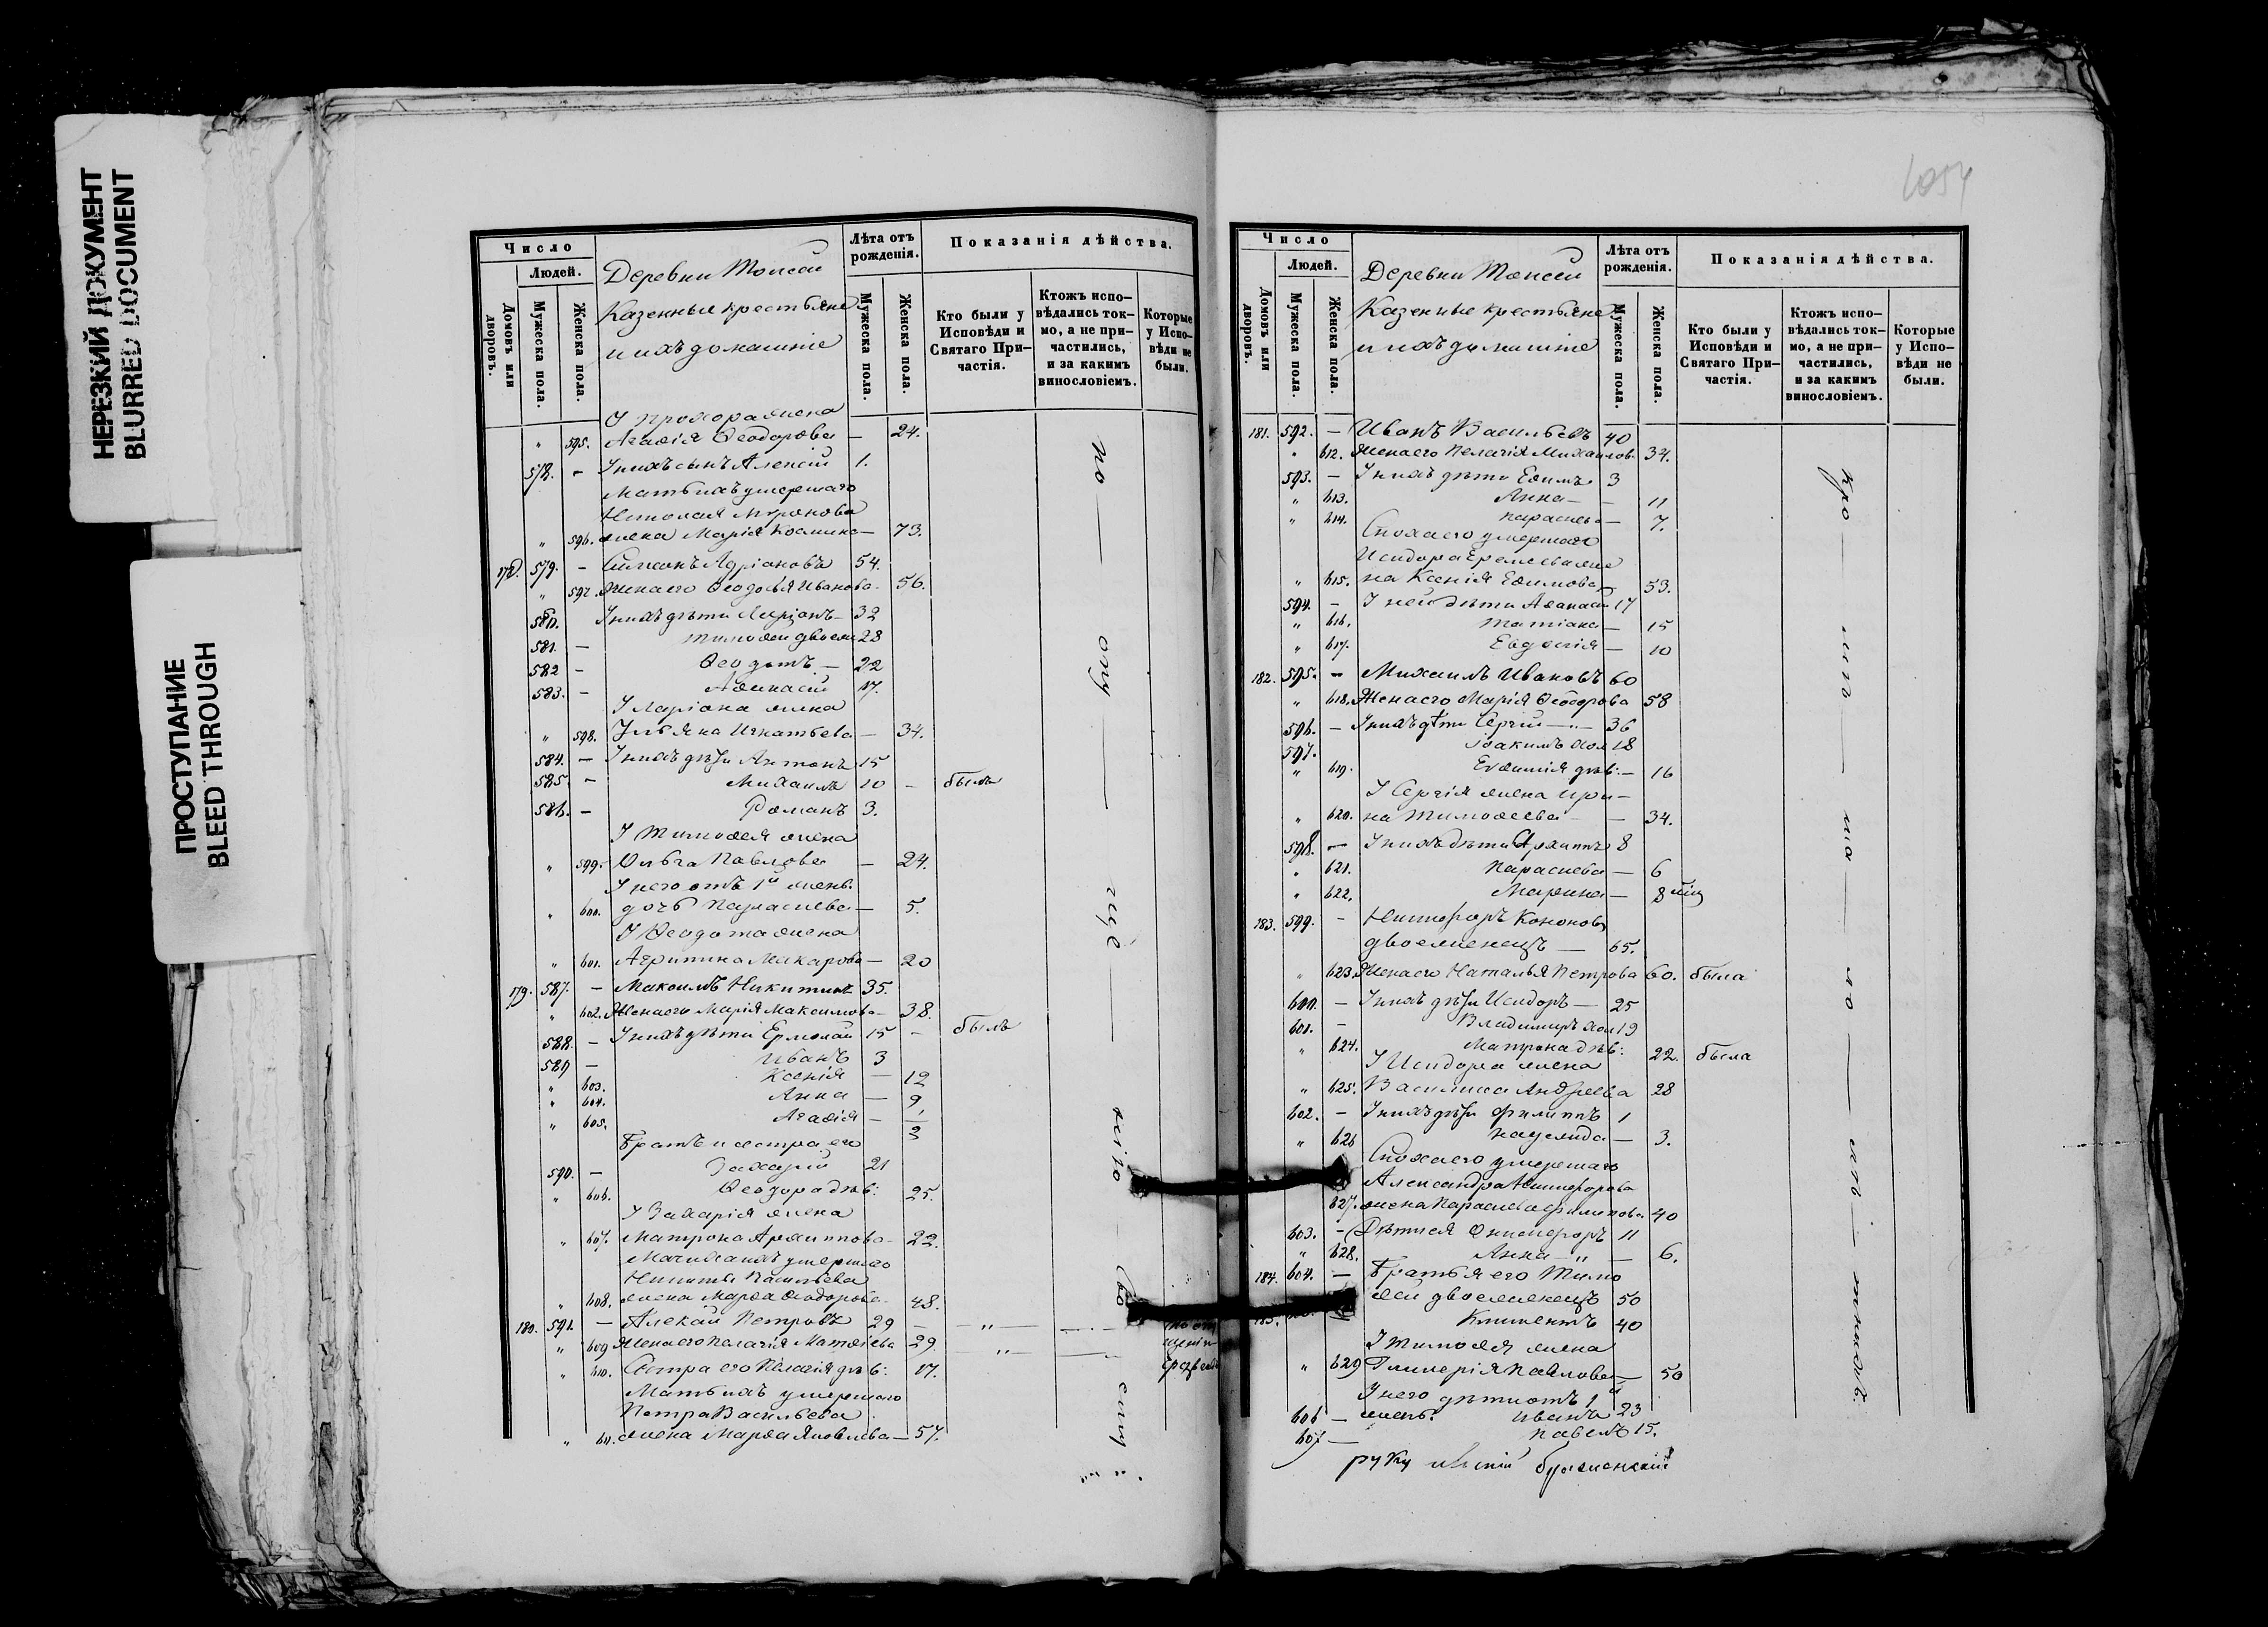 НЕРЕЗКИЙ ДОКУМЕНТ
BLURRED DOCUMENT
ПРОСТУПАНИЕ
BLEED THROUGH
Число
Людей.
Домовъ или дворовъ.
Мужеска пола.
Женска пола.
Деревни
Казенные крестьяне
и ихъ домашніе
Лѣта отъ рожденія.
Мужеска пола.
Женска пола.
Показанія дѣйства.
Кто были у Исповѣди и Святаго При-частія.
Ктожъ испо-вѣдались ток-мо, а не при-частились, и за какимъ винословіемъ.
Которые у Испо-вѣди не были.
У Прохора жена
" 595. Агафія Феодорова — 24.
578. — У нихъ сынъ Алексій 1.
Мать ихъ умершаго
Николая
" 596. жена Марія Космина — 73.
178. 579. — Симеонъ Адріановъ 54.
" 597. Жена его Феодосья Иванова 56.
580. У нихъ дѣти Ларіонъ — 32
581. — Тимофей двоежен 28
582 — Феодотъ — 22
583. — Афанасій 17.
У Ларіона жена
" 598. Ульяна Игнатьева — 34.
584. — У нихъ дѣти Антонъ 15
585. — Михаилъ 10 — былъ
586. — Романъ 3.
У Тимофея жена
" 599. Ольга Павлова — 24.
У него отъ 1й жены
" 600. дочь Параскева — 5.
У Феодота жена
" 601. Агрипина Макарова — 20
179. 587. — Максимъ Никитинъ 35.
" 602. Жена его Марія Максимова — 38.
588. — У нихъ дѣти Ермолай 15 — былъ
589 — Иванъ 3
" 603. Ксенія — 12
" 604. Анна — 9
" 605. Агафія —
Братъ и сестра его
590. — Захарій 21
" 606. Феодора дѣв: 25.
У Захарія жена
" 607. Матрона Архиппова — 22.
Мачиха ихъ умершаго
Никиты Васильева
" 608. жена Марфа Феодорова 48.
180. 591. — Алексій Петровъ 29 — "
" 609 Жена его Пелагія Матфіева 29 — "
" 610. Сестра его Пелагія дѣв: 17.
Мать ихъ умершаго
Петра Васильева
" 611. жена Марфа Яковлева — 57.
Число
Людей.
Домовъ или дворовъ.
Мужеска пола.
Женска пола.
Деревни
Казенные крестьяне
и ихъ домашніе
Лѣта отъ рожденія.
Мужеска пола.
Женска пола.
Показанія дѣйства.
Кто были у Исповѣди и Святаго При-частія.
Ктожъ испо-вѣдались ток-мо, а не при-частились, и за какимъ винословіемъ.
Которые у Испо-вѣди не были.
181. 592. — Иванъ Васильевъ 40
" 612. Жена его Пелагія Михаилов. 34.
593. — У нихъ дѣти Ефимъ 3
" 613. Анна — — 11
" 614. Параскева — 7.
Сноха его умершаго
Исидора Еремеева же
" 615. на Ксенія Ефимова — 53.
594. — У ней дѣти Афанасій 17
" 616. Татіана — 15
" 617. Евдокія — 10
182. 595. — Михаилъ Ивановъ 60
" 618. Жена его Марія Феодорова 58
596. — У нихъ дѣти Сергій — 36
597. Іоакимъ хол 18
" 619. Евфимія дѣв: — 16
У Сергія жена Ири —
" 620. на Тимофеева — — 34.
598. — У нихъ дѣти Архиппъ 8
" 621. Параскева — 6
" 622. Марина — 8 мцъ
183. 599. — Никифоръ Кононовъ
двоеженецъ — 65.
" 623. Жена его Наталья Петрова 60. была
600. — У нихъ дѣти Исидоръ — 25
601. — Владимиръ хол 19
" 624. Матрона дѣв: 22. была
У Исидора жена
" 625. Василиса Андреева 28
602. — У нихъ дѣти Филиппъ 1
" 626 — 3.
Сноха его умершаго
Александра Никифорова
627. жена Параскева Филипова 40
603. — Дѣти ея Онисифоръ 11
" 628. Анна — " — 6.
184. 604. — Братья его Тимо
фей двоеженецъ 50
Климентъ 40
У Тимофея жена
" 629 Гликерія Павлова — 50
У него дѣти отъ 1й
606 — жены: Иванъ 23
607 — Павелъ 15.
руку